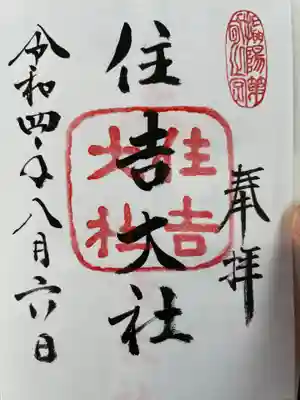 奉拝
住吉大社
住吉
大社
令和四年八月六日